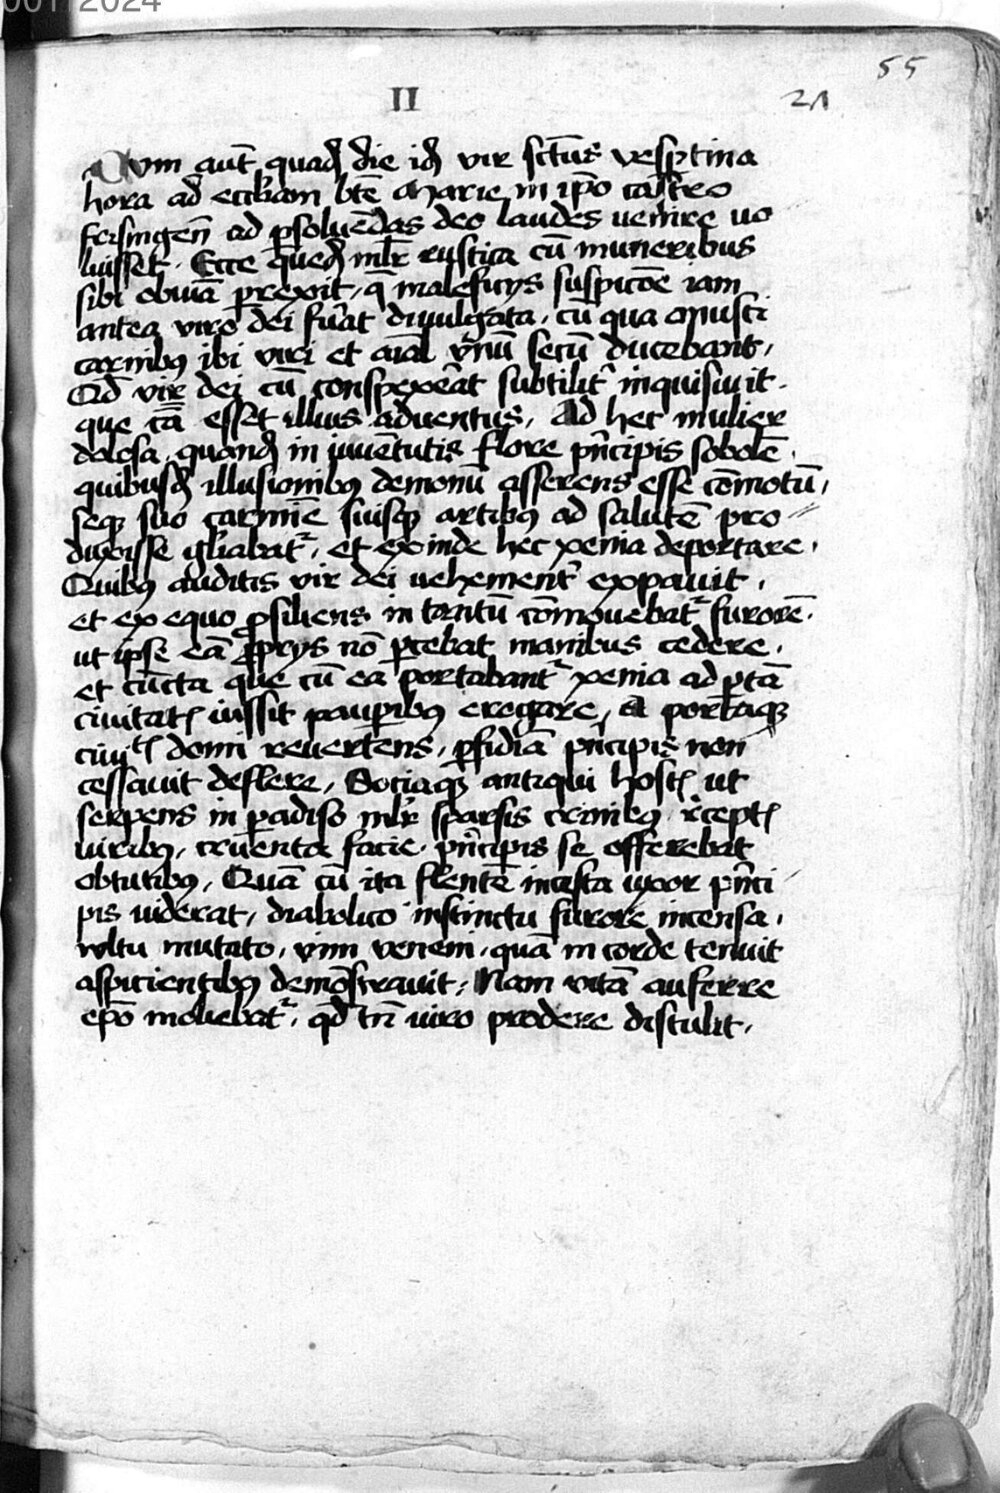 001 2024
55
II
21
Cum aut̄ quad̄ die id̄ vir sct̄us vesp̱tina
hora ad eccl̄iam bt̄e Marie in ip̄o castro
frisingen̄ ad p̱soluēdas deo laudes venire uo
luisset. Ecce qued̄ ml̄r rustica cū muneribus
sibi obviā p̱rexit, q̄ maleficiis suspicōe iam
antea viro dei fūat divulgata, cū qua onusti
carnibꝫ ibi viri et aīal v̄nū secū ducebant,
Qd̄ vir dei cū conspexēat subtilit̄ inquisivit.
que cā esset illius adventus, Ad hec mulier
dolosa, quand̄ in iuvētutis flore pn̄cipis sobolē.
quibusd̄ illusionibꝫ demonū asserens esse cōmotū,
seqꝫ suo carmīe suisqꝫ artibꝫ ad salutē pro
duxisse gl̄iabat᷑, et exinde hec xenia deportare.
Quibꝫ auditis vir dei vehement̄ expavit.
et ex equo ꝓsiliens in tantū cōmovebat᷑ furorē.
ut ipse eā ꝓpriis nō p̱cebat manibus cedere.
et cūcta que cū ea portabant᷑ xenia ad p̱tā
civitatꝭ iussit paup̱ibꝫ erogare, A portaqꝫ
civitꝭ domi revertens, p̱fidiā pn̄cipis non
cessavit deflere, Sociaqꝫ antiqui hostꝭ ut
serpens in p̱adiso ml̄r sparsis crinibꝫ r̄ceptꝭ
viribꝫ, cruenta facie, pn̄cipis se offerebat
obtutibꝫ, Quā cū ita flentē incesta uxor pn̄ci
pis viderat, diabolico instinctu furore incensa,
vultu mutato, vim veneni, quā in corde tenuit
aspicientibꝫ demōstravit, Nam vitā auferre
ep̄o moliebat᷑, qd̄ tn̄ viro prodere distulit.